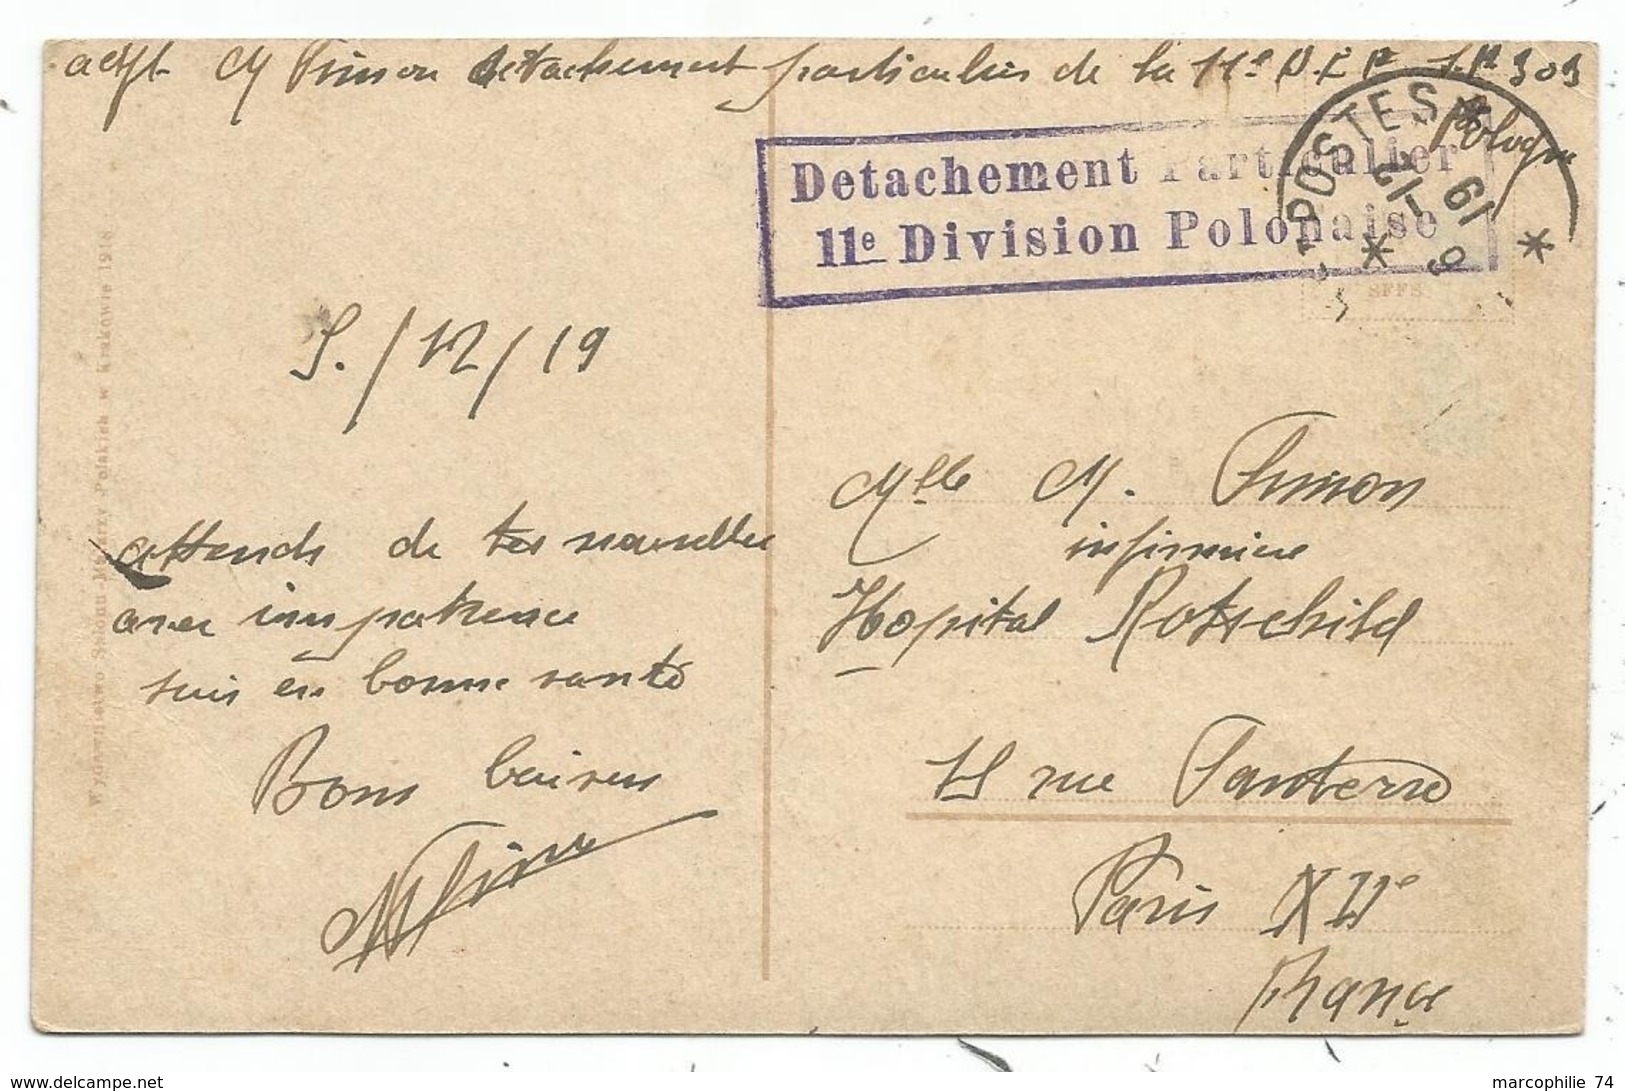 adjt M Simon détachement particulier de la 11e D.I.P S.P 303
Pologne
Detachement Particulier
11e Division Polonaise
POSTES
9 12 19
5./12/19
attends de tes nouvelles
avec impatience
suis en bonne santé
Bons baisers
MSimon
Mlle M. Simon
infirmière
Hopital Rotschild
15 rue Santerre
Paris XIIe
France
Wydawnictwo Salonu Malarzy Polskich w Krakowie 1916
www.delcampe.net
marcophilie 74